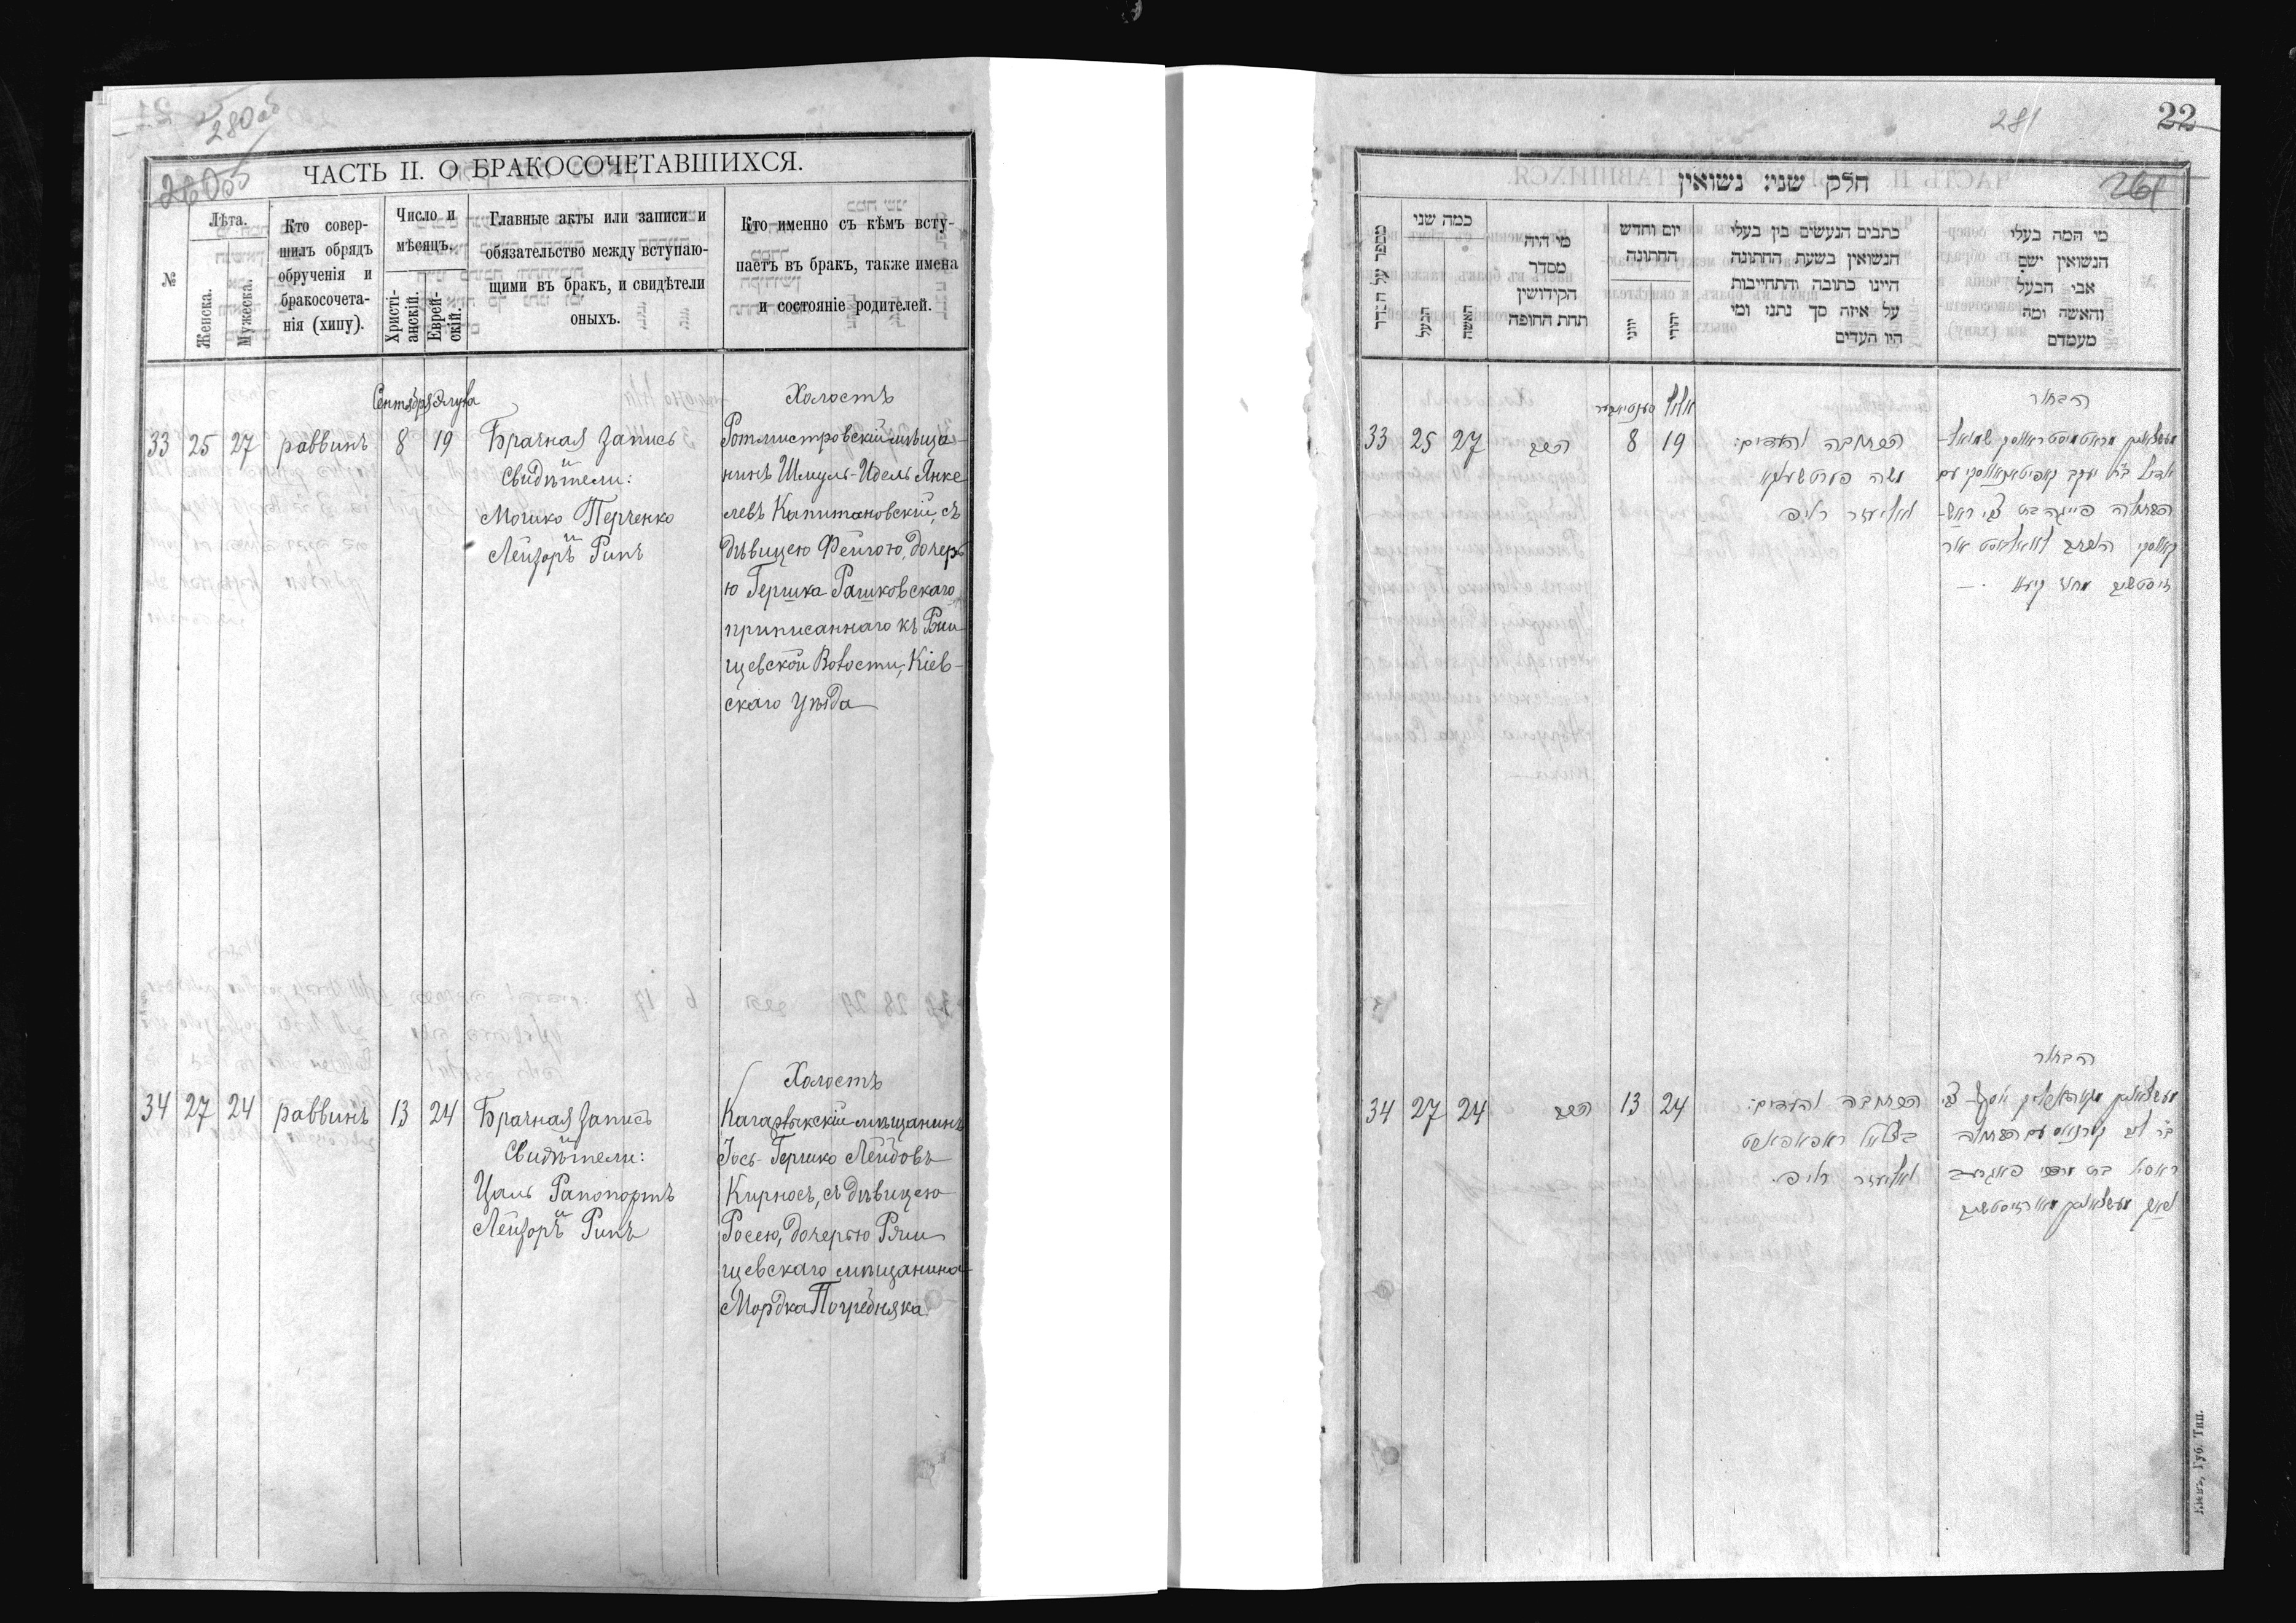 280 об
280 об
ЧАСТЬ II. О БРАКОСОЧЕТАВШИХСЯ.
№
Лѣта.
Женска.
Мужеска.
Кто совер-
шилъ обрядъ
обрученія и
бракосочета-
нія (хипу).
Число и
мѣсяцъ.
Христі-
анскій.
Еврей-
скій.
Главные акты или записи и
обязательство между вступаю-
щими въ бракъ, и свидѣтели
оныхъ.
Кто именно съ кѣмъ всту-
паетъ въ бракъ, также имена
и состояніе родителей.
Сентября Элула
33 25 27 раввинъ 8 19
Брачная запись
и
Свидѣтели:
Мошко Перченко
и
Лейзоръ Рипъ
Холостъ
Ротмистровскій мѣща-
нинъ Шмуль-Идель Янке
левъ Капитановскій, съ
дѣвицею Фейгою, дочерь
ю Гершка Рашковскаго
приписаннаго къ Ржи
щевской Волости, Кіев-
скаго уѣзда
34 27 24 раввинъ 13 24
Брачная запись
и
Свидѣтели:
Цаль Рапопортъ
и
Лейзоръ Рипъ
Холостъ
Кагарлыкскій мѣщанинъ
Іось-Гершко Лейбовъ
Кирносъ, съ дѣвицею
Росею, дочерью Ржи
щевскаго мѣщанина
Мордка Погребняка
281
22
261
חלק שני: נשואין
מספר על הסדר
כמה שני
הבעל
האשה
מי היה
מסדר
הקידושין
תחת החופה
יום וחדש
החתונה
יווני
יהודי
כתבים הנעשים בין בעלי
הנשואין בשעת החתונה
היינו כתובה והתחייבות
על איזה סך נתנו ומי
היו העדים
מי המה בעלי
הנשואין ישם
אבי הבעל
והאשה ומה
מעמדם
אלול
33 25 27 הרב 8 19
הכתובה והעדים:
משה פערטשענקא
ואליעזר ריפ
הבחור
34 27 24 הרב 13 24
הכתובה והעדים:
בצלאל ראפאפארט
ואליעזר ריפ.
הבחור
Кіевъ, Губ. Тип.